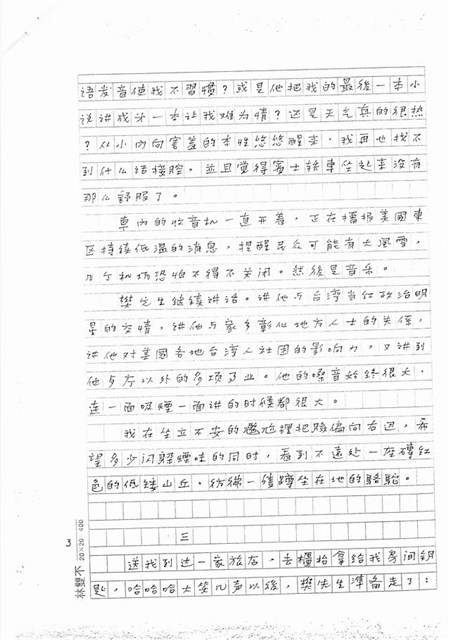 语发音使我不習慣？或是他把我的最後一本小
说讲成另一本让我难为情？还是天气真的很热
？从小内向害羞的本性悠悠醒来，我再也找不
到什么话接腔。並且觉得賓士轿車坐起来没有
那么舒服了。
車内的收音机一直开着，正在播报美國東
区持续低温的消息，提醒民众可能有大風雪，
几个机场恐怕不得不关闭。然後是音乐。
樊先生继续讲话。讲他与台湾当红政治明
星的交情，讲他与家乡彰化地方人士的关係，
讲他对美國各地台湾人社团的影响力，又讲到
他与方以外的多项了业。他的嗓音始终很大，
连一面吸煙一面讲的时候都很大。
我在坐立不安的尷尬裡把臉偏向右边，希
望多少闪躲煙味的同时，看到不遠处一座磚红
色的低矮山丘，彷彿一隻蹲坐在地的骆骀。
三
送我到达一家旅店，去櫃抬拿给我房间钥
匙，哈哈哈大笑几声以後，樊先生準备走了：
3
林雙不 20×20=400